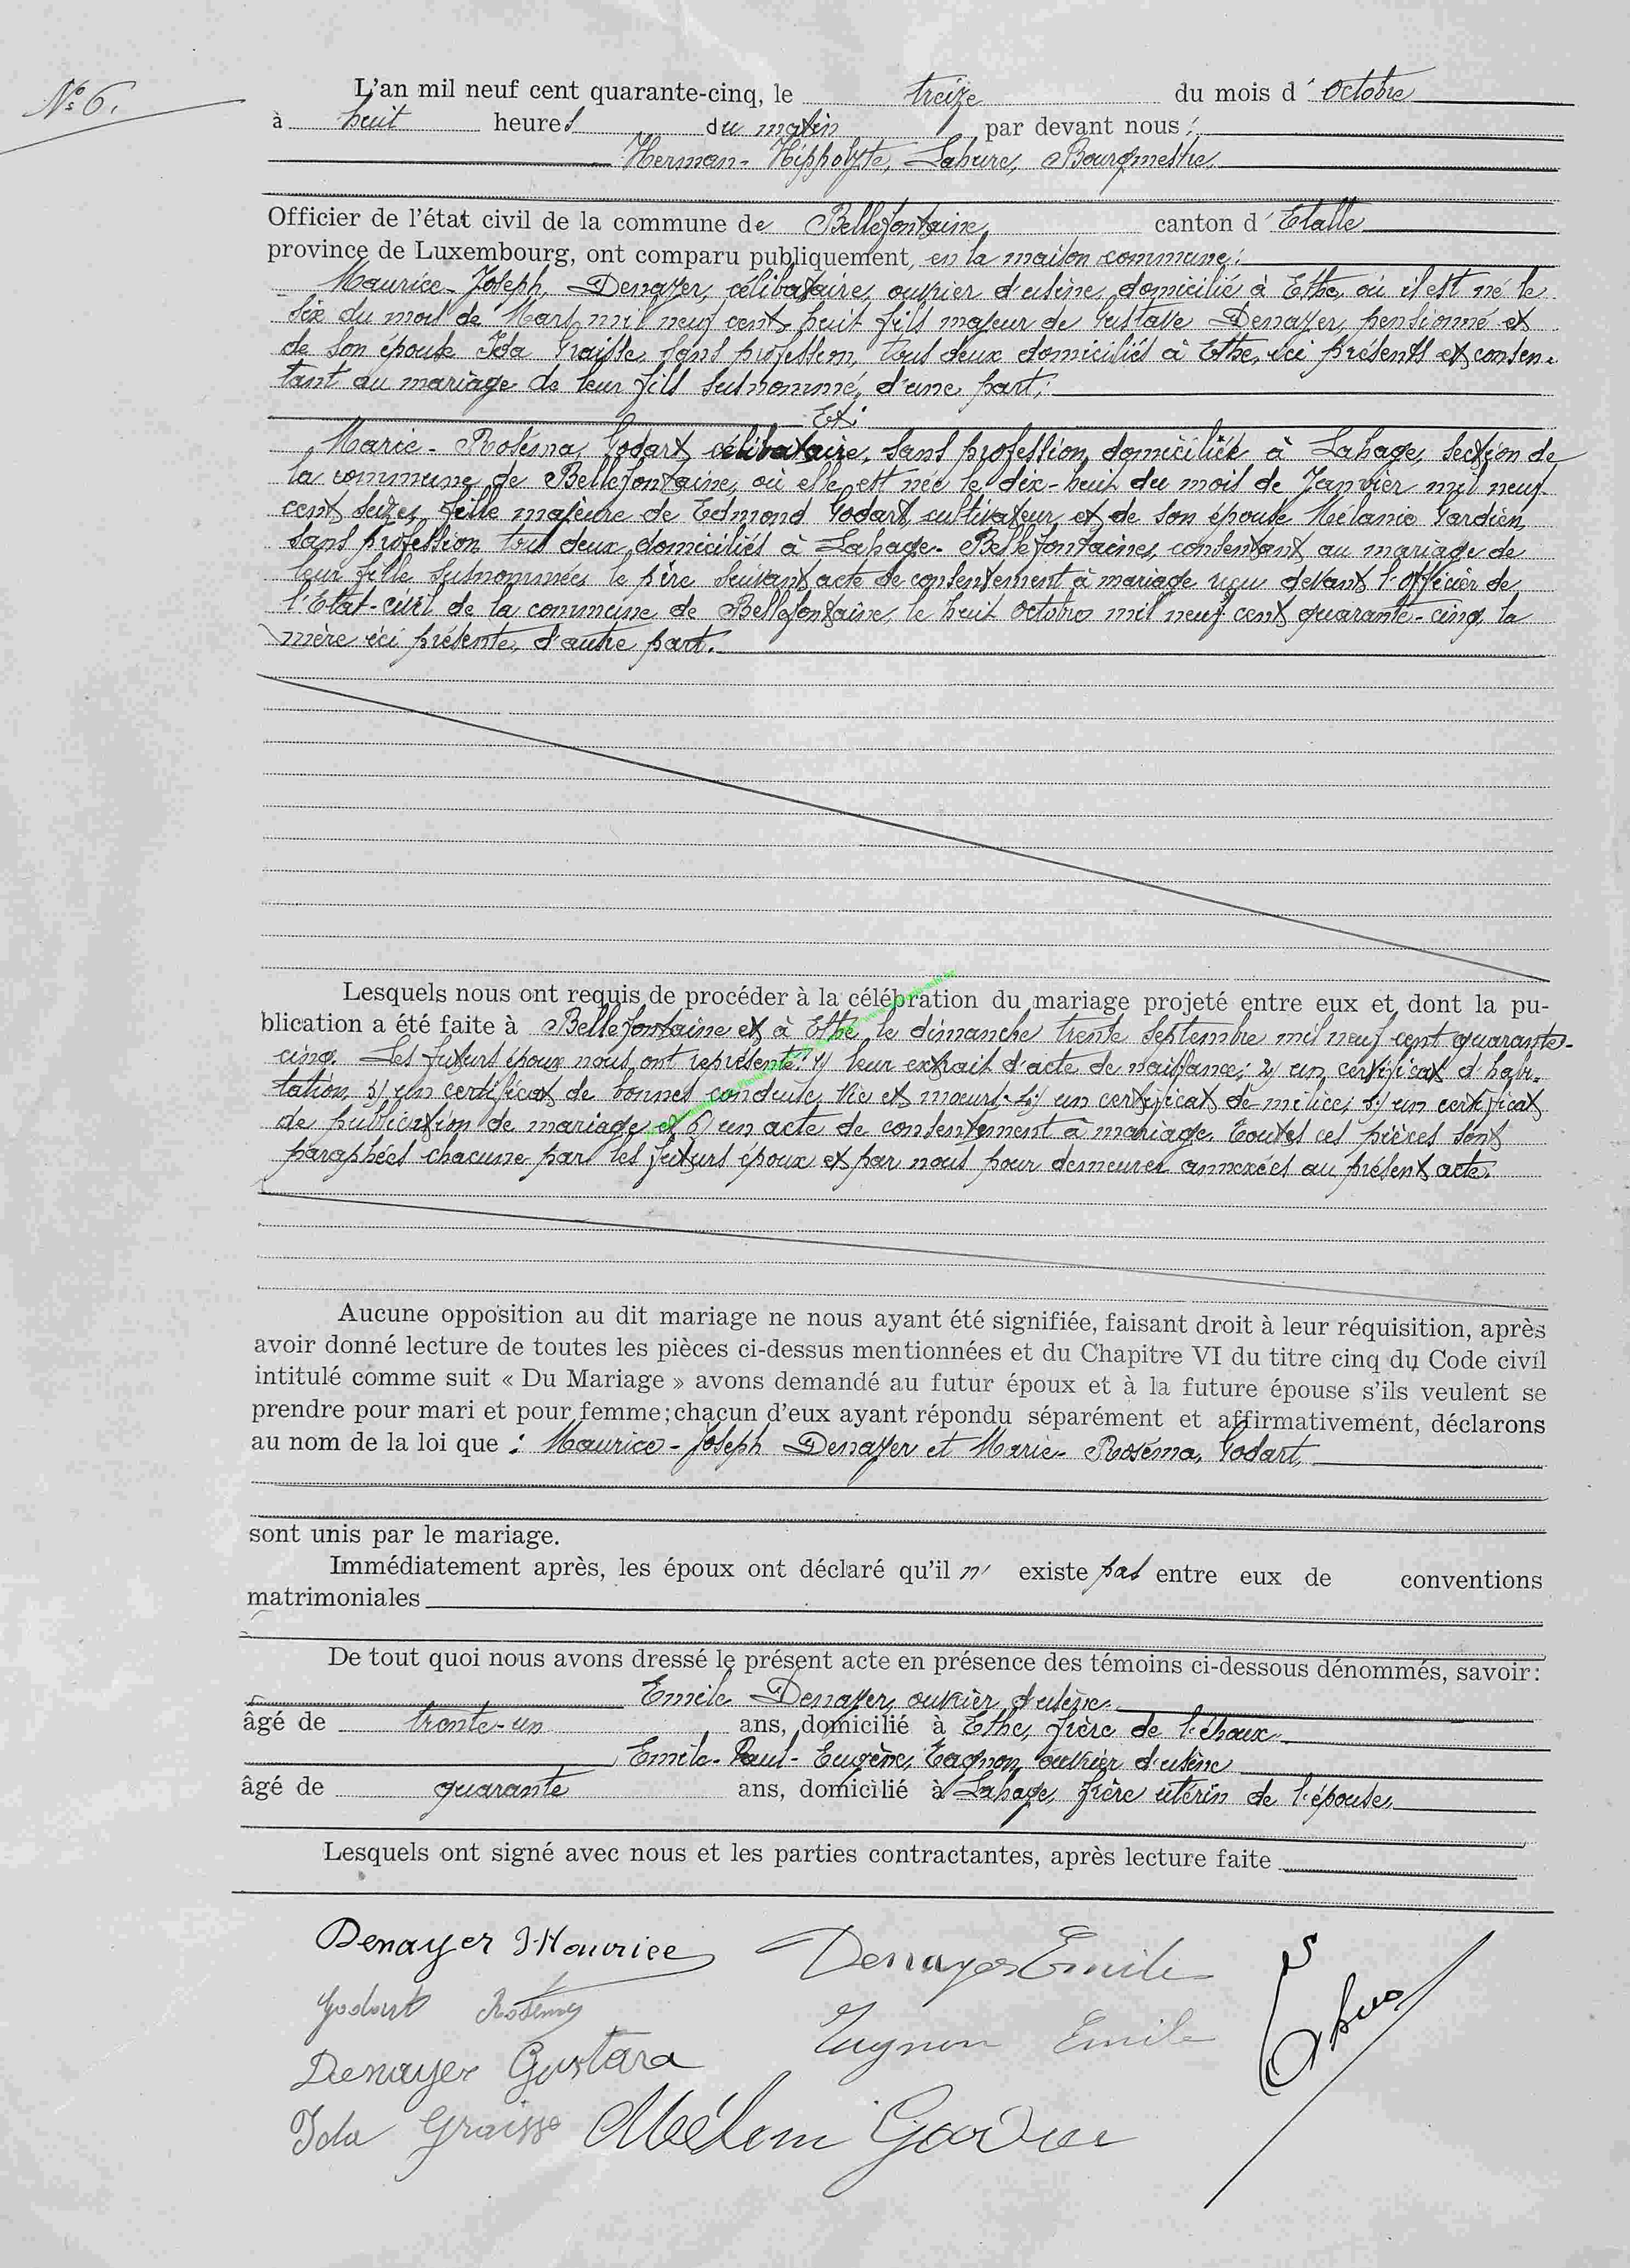 N° 6.
L'an mil neuf cent quarante-cinq, le treize du mois d' octobre
à huit heures du matin par devant nous :
Herman - Hippolyte, Lahure, Bourgmestre,
Officier de l'état civil de la commune de Bellefontaine, canton d' Etalle
province de Luxembourg, ont comparu publiquement, en la maison commune :
Maurice - Joseph, Denayer, célibataire, ouvrier d'usine, domicilié à Ethe, où il est né le
six du mois de Mars mil neuf cent huit fils majeur de Gustave Denayer, pensionné et
de son épouse Ida Graisse, sans profession, tous deux domiciliés à Ethe, ici présents et consen-
tant au mariage de leur fils susnommé, d'une part;
Et:
Marie - Roséma, Godart, célibataire, sans profession, domiciliée à Lahage, section de
la commune de Bellefontaine, où elle est née le dix-huit du mois de Janvier mil neuf
cent seize, fille majeure de Edmond Godart, cultivateur et de son épouse Mélanie Gardien,
sans profession, tous deux domiciliés à Lahage - Bellefontaine, consentant au mariage de
leur fille susnommée, le père suivant acte de consentement à mariage reçu devant l'officier de
l'Etat-civil de la commune de Bellefontaine, le huit octobre mil neuf cent quarante-cinq, la
mère ici présente, d'autre part.
Lesquels nous ont requis de procéder à la célébration du mariage projeté entre eux et dont la pu-
blication a été faite à Bellefontaine et à Ethe le dimanche trente septembre mil neuf cent quarante-
cinq. Les futurs époux nous ont représenté: 1) leur extrait d'acte de naissance; 2) un certificat d'habi-
tation, 3) un certificat de bonnes conduite, vie et mœurs. 4) un certificat de milice; 5) un certificat
de publication de mariage et 6) un acte de consentement à mariage. Toutes ces pièces sont
paraphées chacune par les futurs époux et par nous pour demeurer annexées au présent acte.
Aucune opposition au dit mariage ne nous ayant été signifiée, faisant droit à leur réquisition, après
avoir donné lecture de toutes les pièces ci-dessus mentionnées et du Chapitre VI du titre cinq du Code civil
intitulé comme suit « Du Mariage » avons demandé au futur époux et à la future épouse s'ils veulent se
prendre pour mari et pour femme; chacun d'eux ayant répondu séparément et affirmativement, déclarons
au nom de la loi que : Maurice - Joseph Denayer et Marie - Roséma, Godart,
sont unis par le mariage.
Immédiatement après, les époux ont déclaré qu'il n' existe pas entre eux de conventions
matrimoniales
De tout quoi nous avons dressé le présent acte en présence des témoins ci-dessous dénommés, savoir :
Emile Denayer, ouvrier d'usine
âgé de trente-un ans, domicilié à Ethe, frère de l'époux.
Emile - Paul - Eugène, Tagnon, ouvrier d'usine
âgé de quarante ans, domicilié à Lahage, frère utérin de l'épouse,
Lesquels ont signé avec nous et les parties contractantes, après lecture faite
Denayer Maurice Denayer Emile
Godart Roséma Tagnon Emile
Denayer Gustava
Ida Graisse